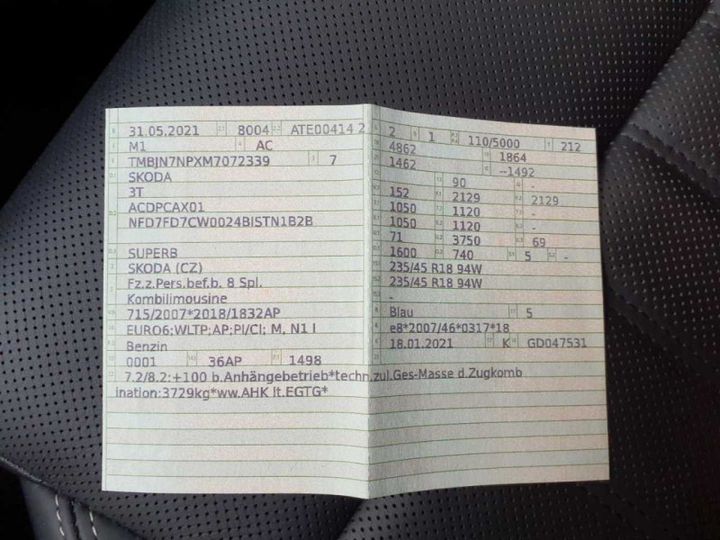 31.05.2021 8004 ATE00414 2
M1 AC
TMBJN7NPXM7072339 7
SKODA
3T
ACDPCAX01
NFD7FD7CW0024BISTN1B2B
SUPERB
SKODA (CZ)
Fz.z.Pers.bef.b. 8 Spl.
Kombilimousine
715/2007*2018/1832AP
EURO6;WLTP;AP;PI/CI; M, N1 I
Benzin
0001 36AP 1498
2 1 110/5000 212
4862 1864
1462 --1492
90 -
152 2129 2129
1050 1120 -
1050 1120 -
71 3750 69
1600 740 5 -
235/45 R18 94W
235/45 R18 94W
-
Blau 5
e8*2007/46*0317*18
18.01.2021 K GD047531
7.2/8.2:+100 b.Anhängebetrieb*techn.zul.Ges-Masse d.Zugkomb
ination:3729kg*ww.AHK lt.EGTG*